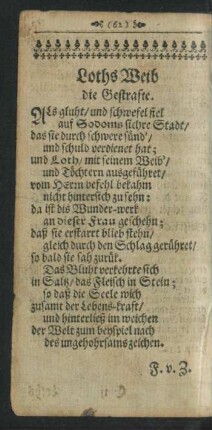 (62)
Loths Weib
die Gestrafte.
ALs gluht/ und schwefel fiel
auf Sodoms sichre Stadt/
das sie durch schwere sünd'/
und schuld verdienet hat;
und Loth/ mit seinem Weib'/
und Töchtern ausgeführet/
vom HErrn befehl bekahm
nicht hintersich zu sehn:
da ist diß Wunder-werk
an dieser Frau geschehn;
daß sie erstarrt blieb stehn/
gleich durch den Schlag gerühret/
so bald sie sah zurük.
Das Bluht verkehrte sich
in Saltz/ das Fleisch in Stein;
so daß die Seele wich
zusamt der Lebens-kraft/
und hinterließ im weichen
der Welt zum beyspiel nach
des ungehohrsams zeichen.
F. v. Z.